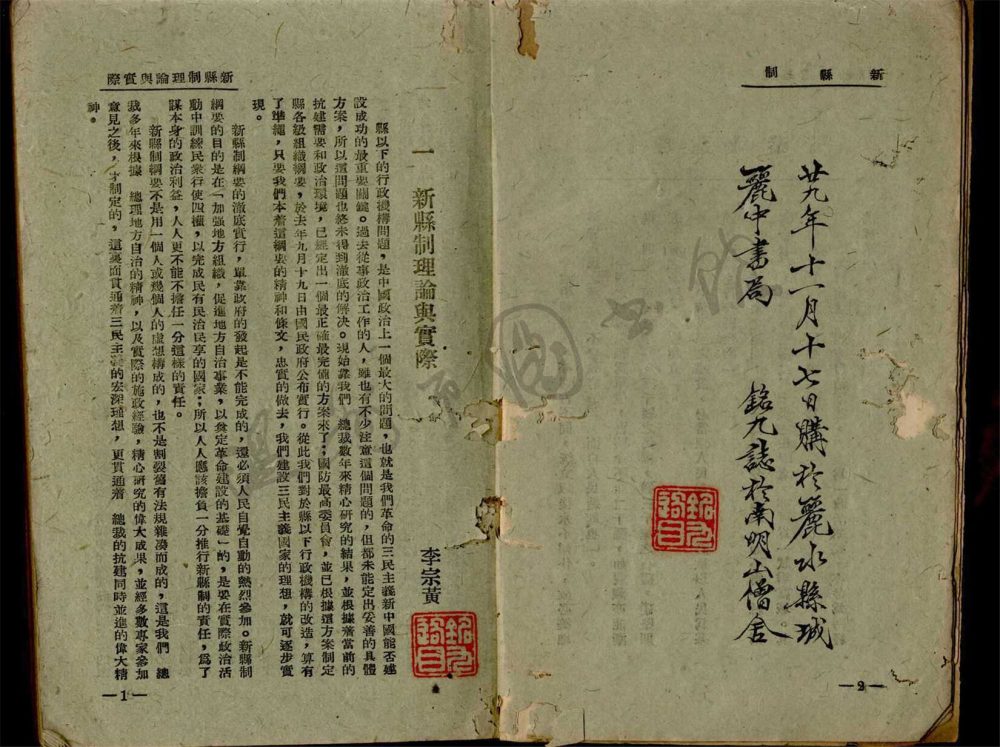 新縣制
廿九年十一月十七日購於麗水縣城
麗中書局　銘九誌於南明山僧舍
銘九
—2—
新縣制理論與實際
一　新縣制理論與實際
李宗黃
銘九
縣以下的行政機構問題，是中國政治上一個最大的問題，也就是我們革命的三民主義新中國能否建
設成功的最重要關鍵。過去從事政治工作的人，雖也有不少注意這個問題的，但都未能定出妥善的具體
方案，所以這問題也終未得到澈底的解决。現始靠我們　總裁數年來精心研究的結果，並根據着當前的
抗建需要和政治環境，已經定出一個最正確最完備的方案來了；國防最高委員會，並已根據這方案制定
縣各級組織綱要，於去年九月十九日由國民政府公布實行。從此我們對於縣以下行政機構的改造，算有
了準繩，只要我們本着這綱要的精神和條文，忠實的做去，我們建設三民主義國家的理想，就可逐步實
現。
新縣制綱要的澈底實行，單靠政府的發起是不能完成的，還必須人民自覺自動的熱烈參加。新縣制
綱要的目的是在「加强地方組織，促進地方自治事業，以奠定革命建設的基礎」的，是要在實際政治活
動中訓練民衆行使四權，以完成民有民治民享的國家；所以人人應該擔負一分推行新縣制的責任，爲了
謀本身的政治利益，人人更不能不擔任一分這樣的責任。
新縣制綱要不是用一個人或幾個人的虛想構成的，也不是割裂舊有法規雜湊而成的，這是我們　總
裁多年來根據　總理地方自治的精神，以及實際的施政經驗，精心研究的偉大成果，並經多數專家參加
意見之後，才制定的，這裏面貫通着三民主義的宏深理想，更貫通着　總裁的抗建同時並進的偉大精
神。
—1—